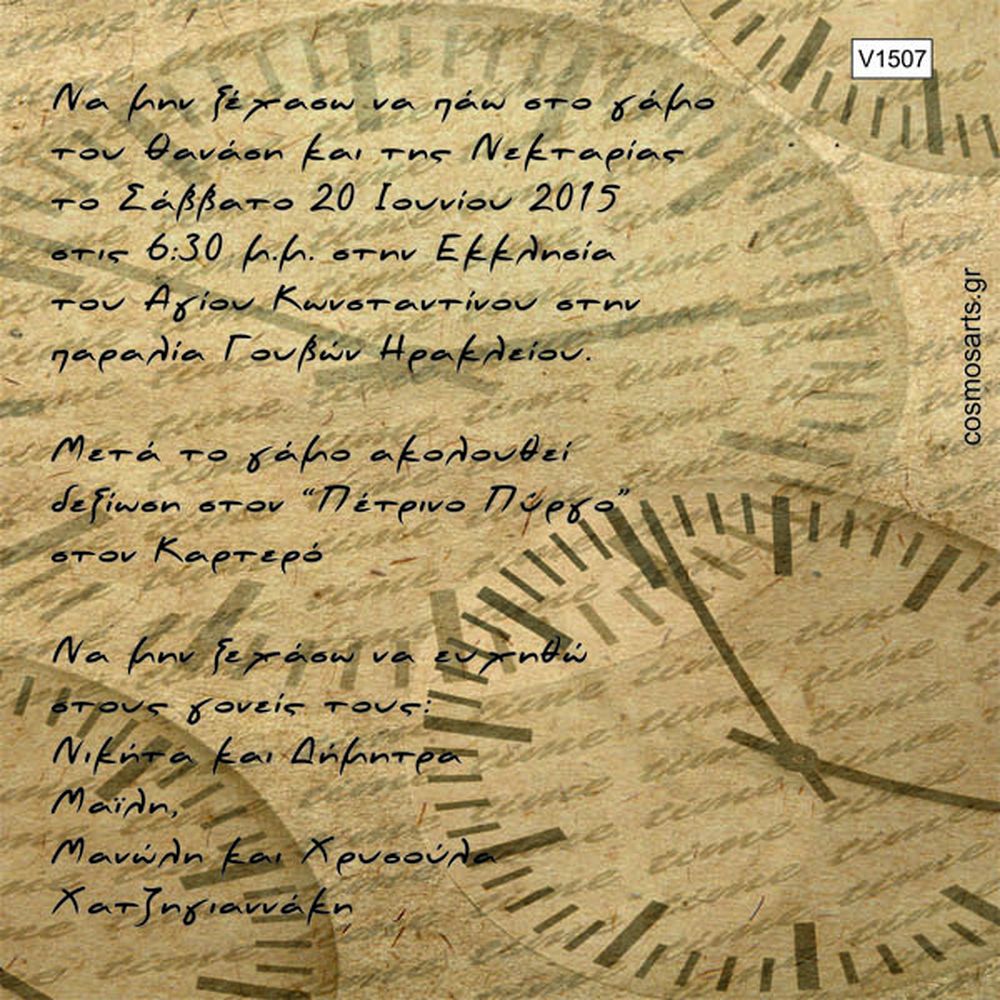 V1507
Να μην ξέχασω να πάω στο γάμο
του Θανάση και της Νεκταρίας
το Σάββατο 20 Ιουνίου 2015
στις 6:30 μ.μ. στην Εκκλησία
του Αγίου Κωνσταντίνου στην
παραλία Γουβών Ηρακλείου.
cosmosarts.gr
Μετά το γάμο ακολουθεί
δεξίωση στον “Πέτρινο Πύργο”
στον Καρτερό
Να μην ξεχάσω να ευχηθώ
στους γονείς τους:
Νικήτα και Δήμητρα
Μαϊλη,
Μανώλη και Χρυσούλα
Χατζηγιαννάκη